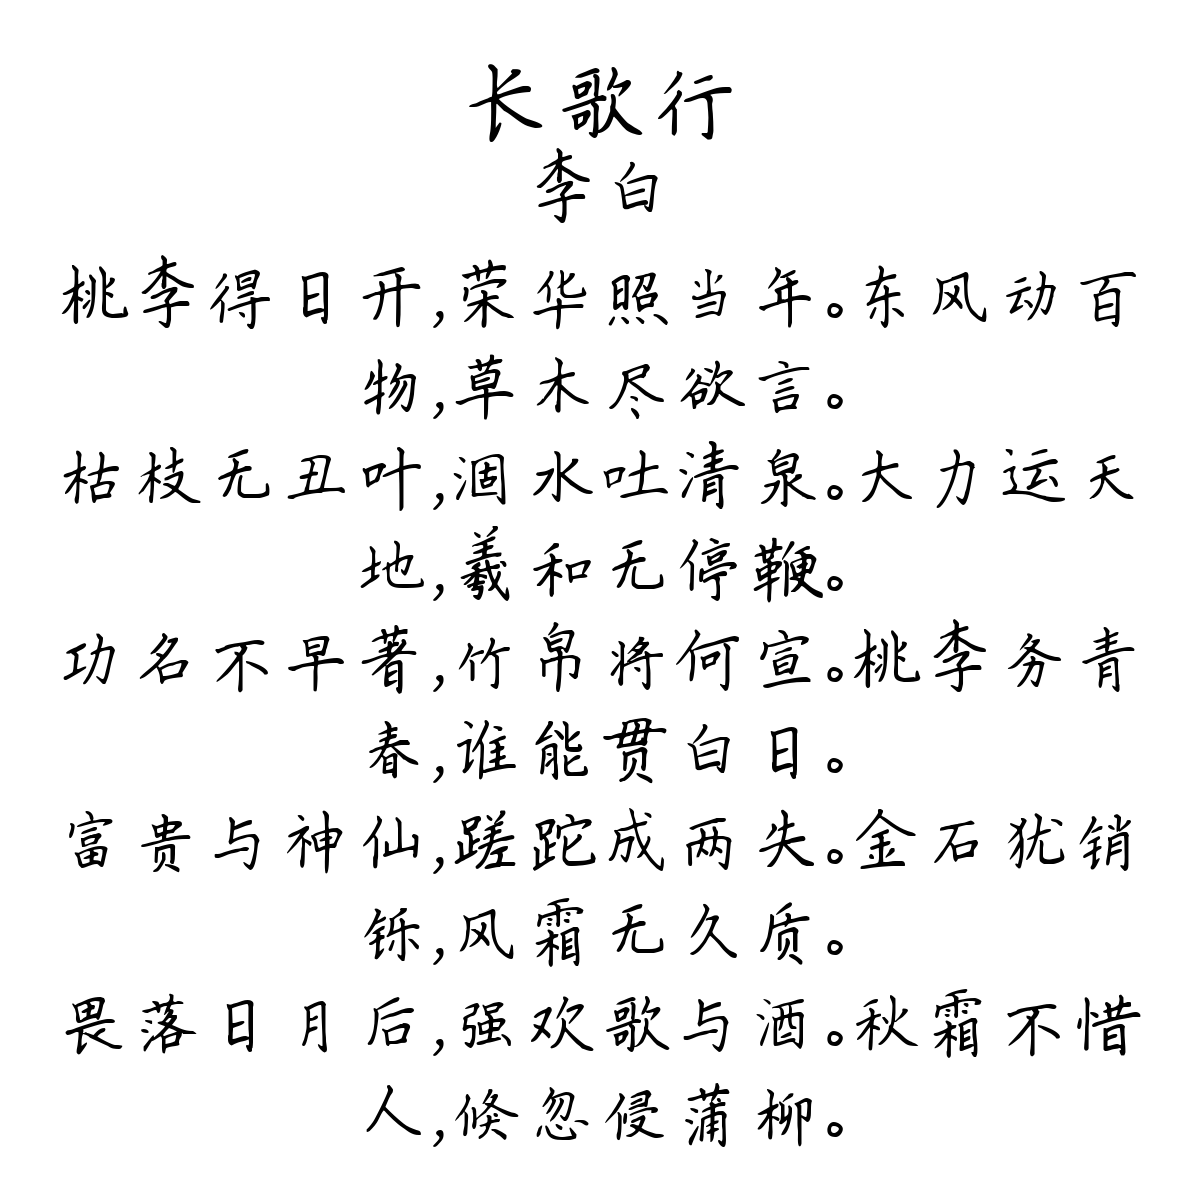 长歌行
李白
桃李得日开,荣华照当年。东风动百
物,草木尽欲言。
枯枝无丑叶,涸水吐清泉。大力运天
地,羲和无停鞭。
功名不早著,竹帛将何宣。桃李务青
春,谁能贯白日。
富贵与神仙,蹉跎成两失。金石犹销
铄,风霜无久质。
畏落日月后,强欢歌与酒。秋霜不惜
人,倏忽侵蒲柳。